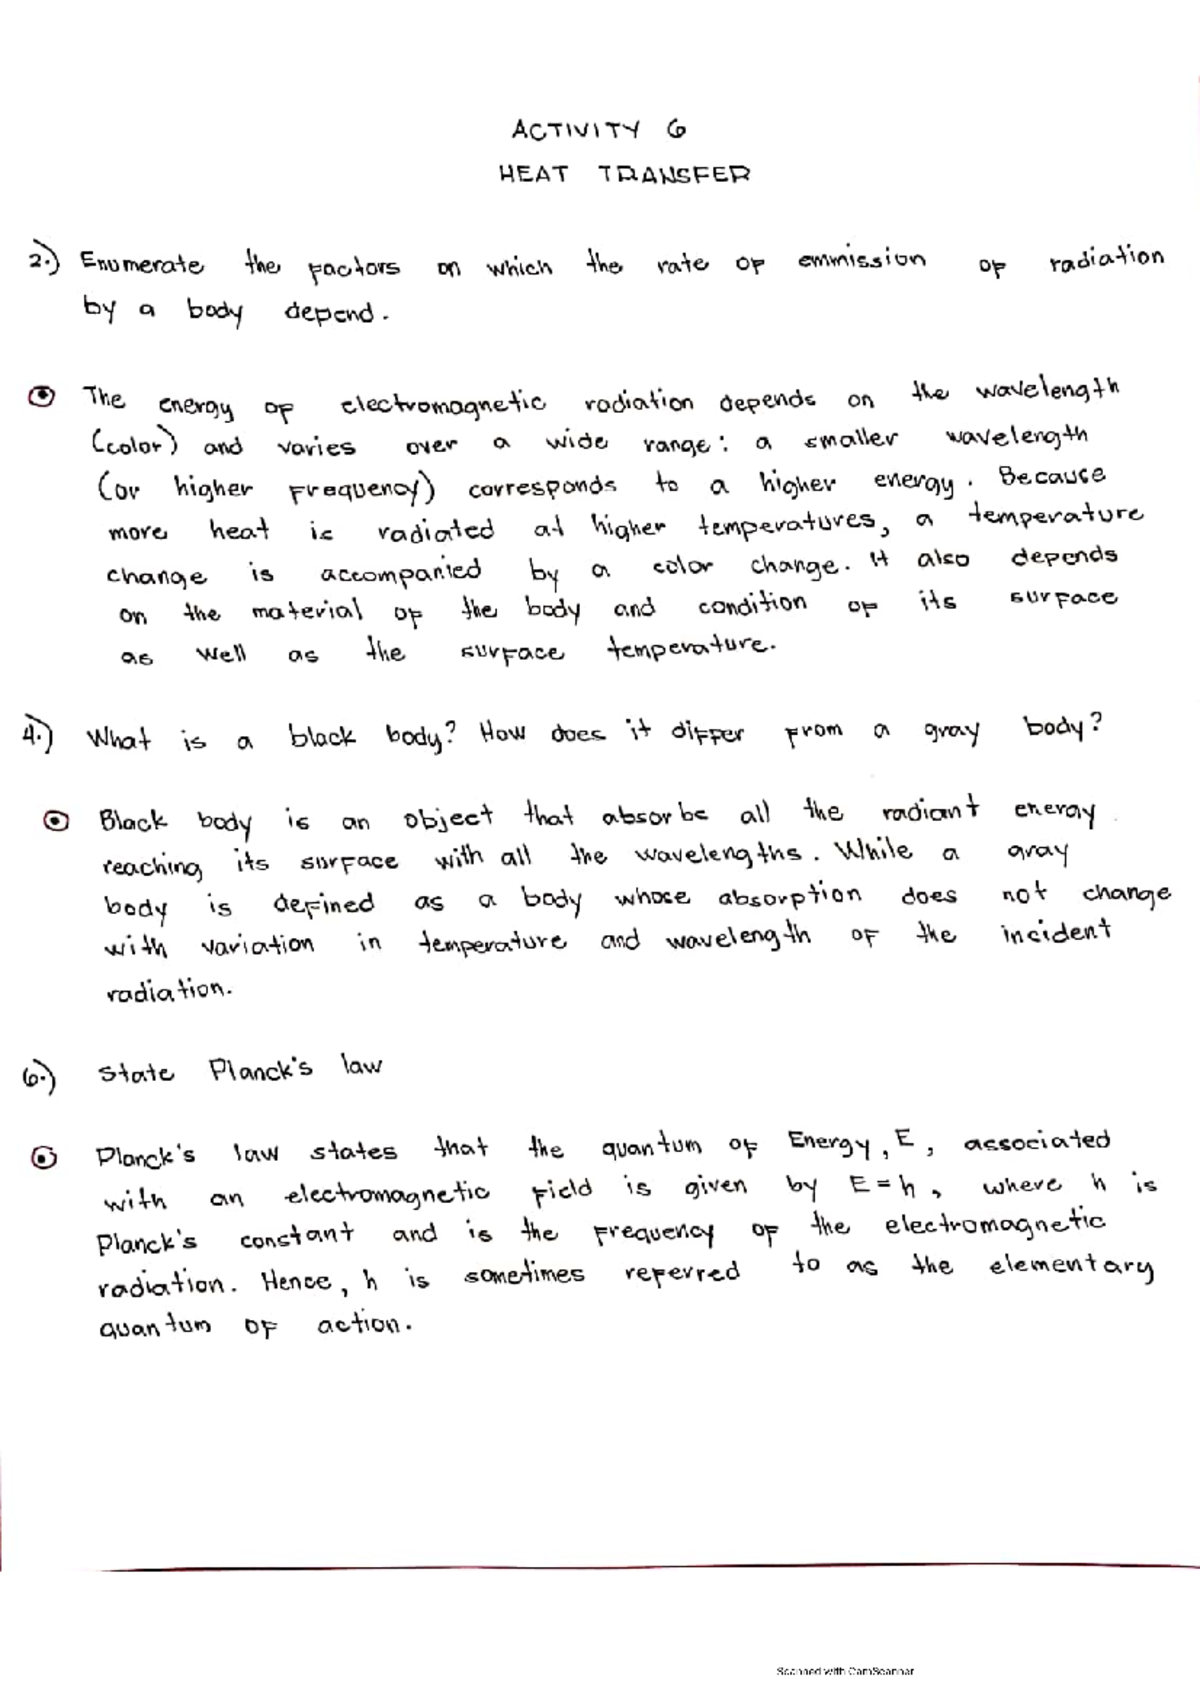 ACTIVITY 6
HEAT TRANSFER
2.) Enumerate the factors on which the rate of emmission of radiation
by a body depend.
The energy of electromagnetic radiation depends on the wavelength
(color) and varies over a wide range: a smaller wavelength
(or higher frequency) corresponds to a higher energy. Because
more heat is radiated at higher temperatures, a temperature
change is accompanied by a color change. It also depends
on the material of the body and condition of its surface
as well as the surface temperature.
4.) What is a black body? How does it differ from a gray body?
Black body is an object that absorbs all the radiant energy
reaching its surface with all the wavelengths. While a gray
body is defined as a body whose absorption does not change
with variation in temperature and wavelength of the incident
radiation.
6.) State Planck's law
Planck's law states that the quantum of Energy, E, associated
with an electromagnetic field is given by E = h, where h is
Planck's constant and is the frequency of the electromagnetic
radiation. Hence, h is sometimes referred to as the elementary
quantum of action.
Scanned with CamScanner